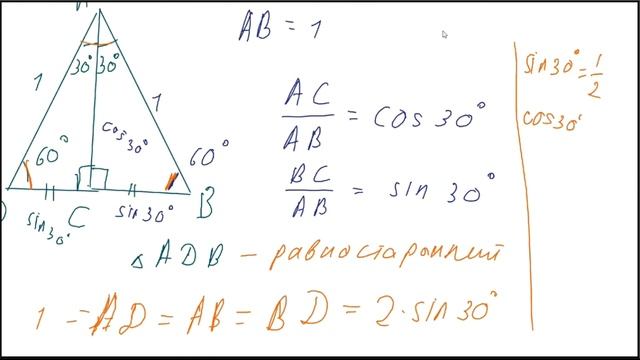 AB = 1
30° 30°
1
1
cos 30°
60°
60°
C
B
sin 30°
sin 30°
AC / AB = cos 30°
BC / AB = sin 30°
sin 30° = 1/2
cos 30°
△ ADB – равносторонний
1 = AD = AB = BD = 2·sin 30°